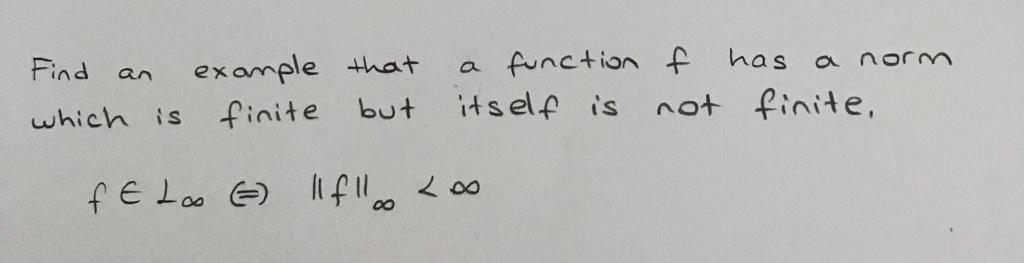 Find an example that a function f has a norm
which is finite but itself is not finite.
f ∈ L∞ ⇔ ||f||∞ < ∞